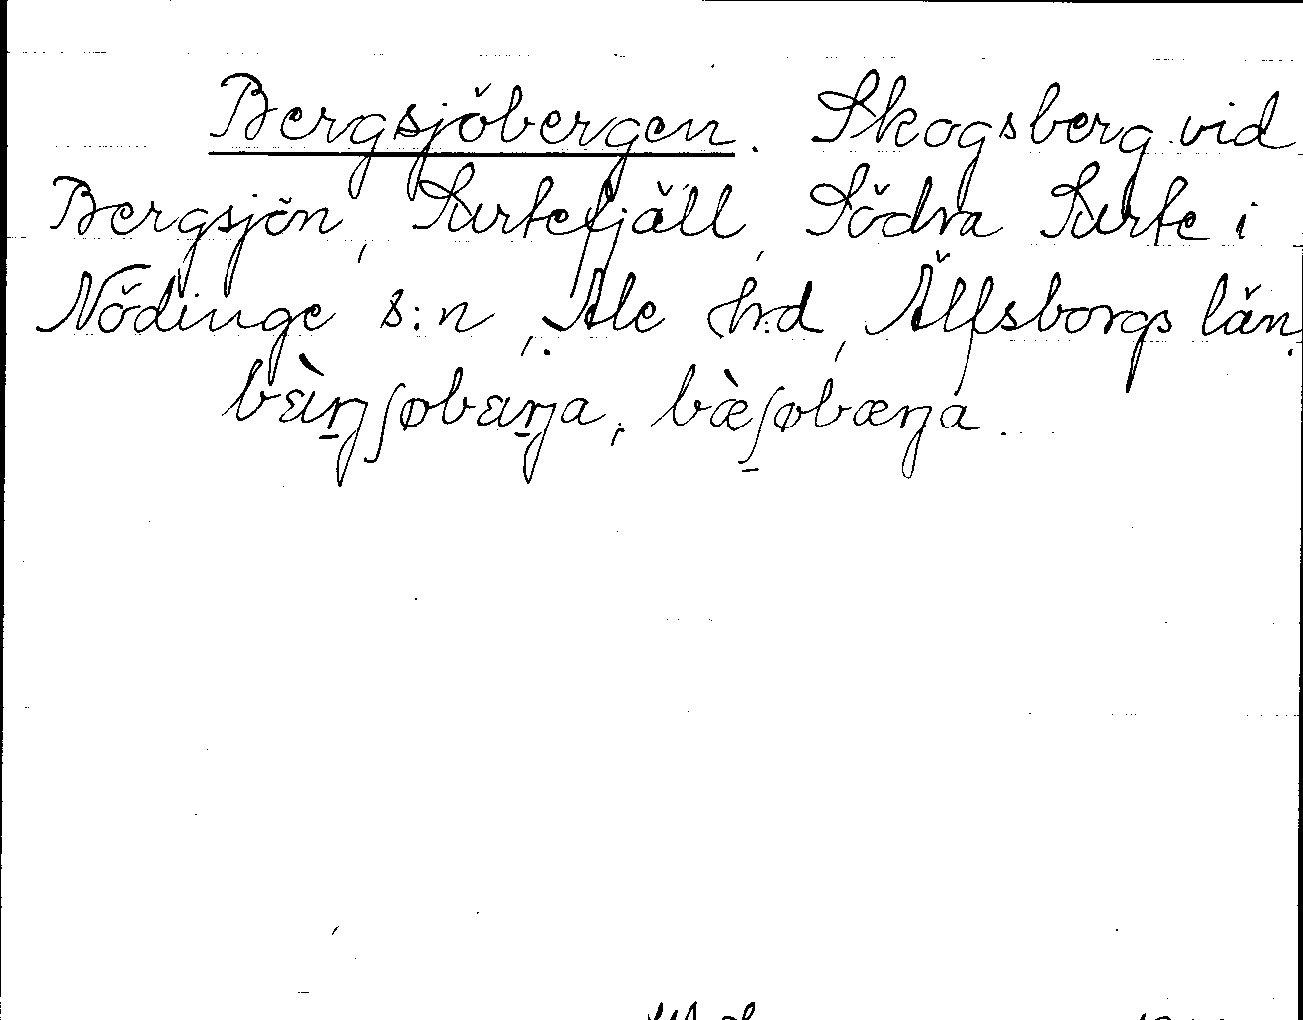 Bergsjöbergen. Skogsberg vid
Bergsjön, Surtefjäll, Södra Surte i
Nödinge s:n, Ale h:d, Älfsborgs län.
bɛ̀ŋʃøbɛŋa, bæ̀ʃøbæŋa.